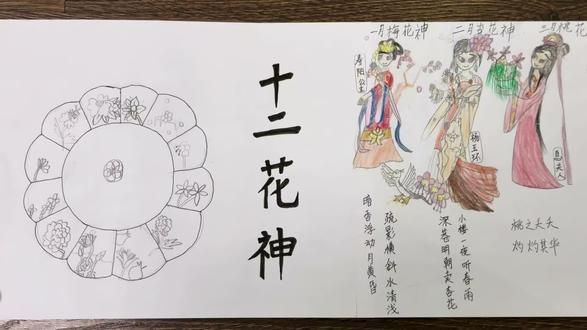 十二花神
一月梅花神
寿阳公主
疏影横斜水清浅
暗香浮动月黄昏
二月杏花神
杨玉环
小楼一夜听春雨
深巷明朝卖杏花
三月桃花
息夫人
桃之夭夭
灼灼其华